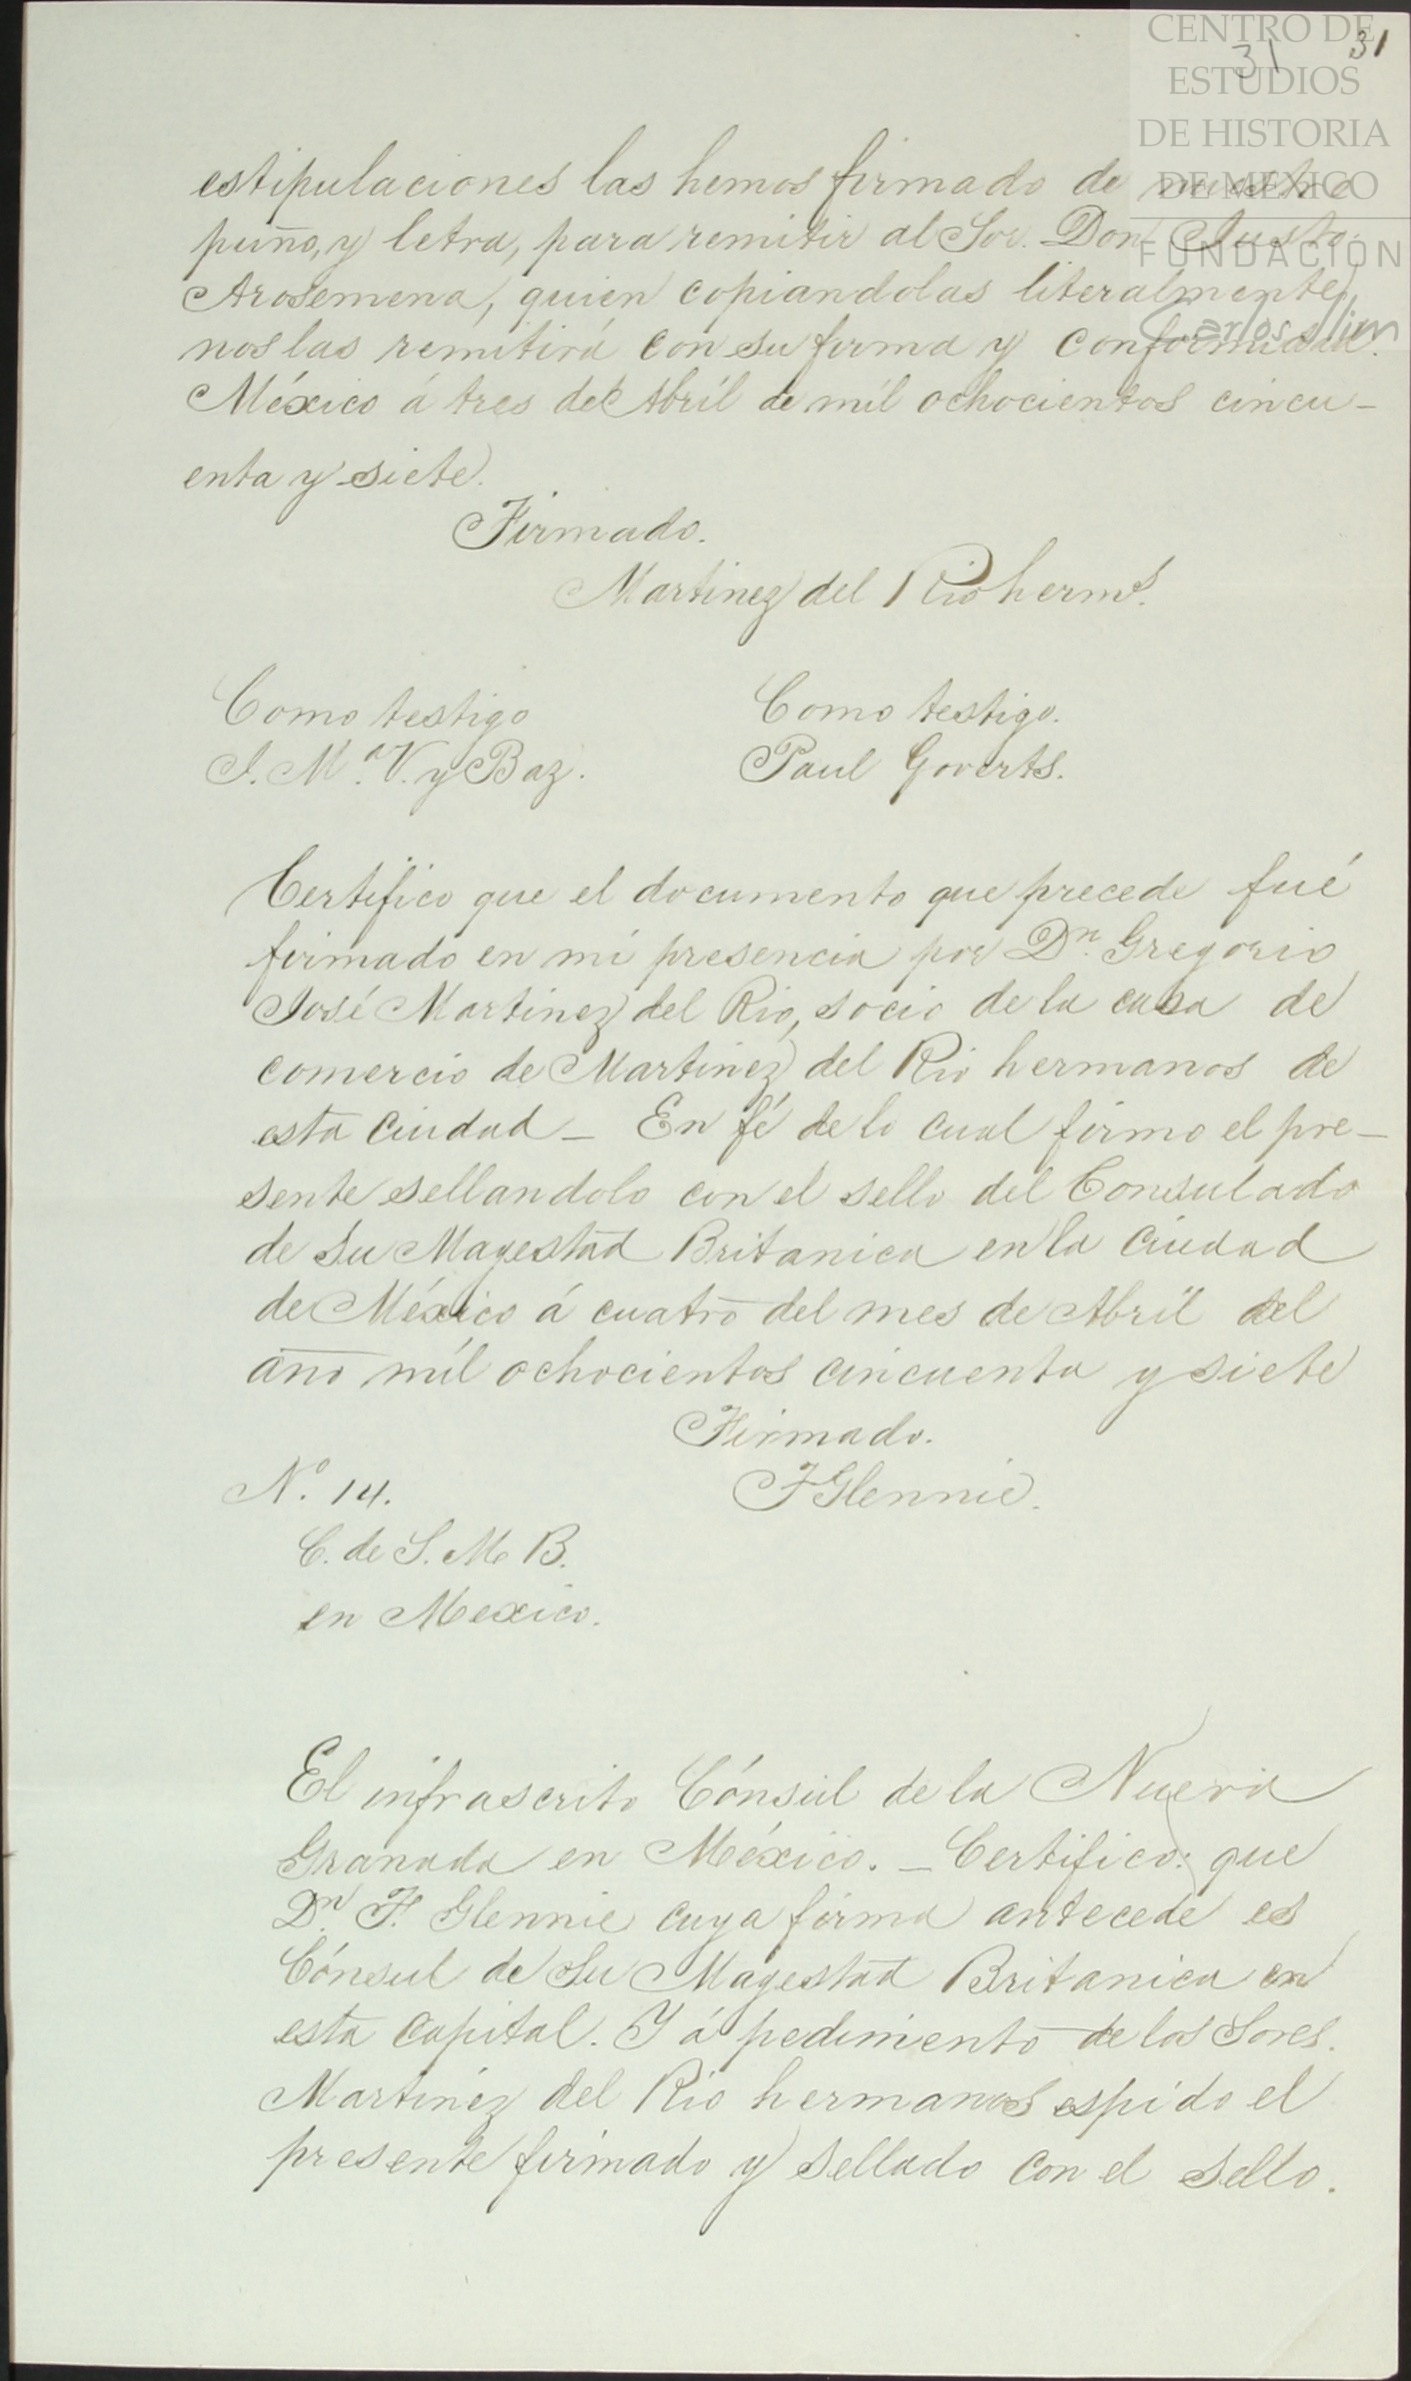 CENTRO DE
ESTUDIOS
DE HISTORIA
DE MÉXICO
FUNDACIÓN
Carlos Slim
31 31
estipulaciones las hemos firmado de nuestro
puño, y letra, para remitir al Sor. Don Justo
Arosemena, quien copiandolas literalmente,
nos las remitirá con su firma y conformidad.
México á tres de Abril de mil ochocientos cincu-
enta y siete.
Firmado.
Martinez del Rio herms.
Como testigo
J. M.a V. y Baz.
Como testigo.
Paul Goverts.
Certifico que el documento que precede fué
firmado en mi presencia por Dn. Gregorio
José Martinez del Rio, socio de la casa de
comercio de Martinez del Rio hermanos de
esta ciudad _ En fé de lo cual firmo el pre-
sente sellandolo con el sello del Consulado
de Su Magestad Britanica en la Ciudad
de México á cuatro del mes de Abril del
año mil ochocientos cincuenta y siete
Firmado.
FGlennie.
No. 14.
C. de S. M. B.
en Mexico.
El infrascrito Cónsul de la Nueva
Granada en México. _ Certifico: que
Dn. F. Glennie cuya firma antecede es
Cónsul de Su Magestad Britanica en
esta Capital. Y á pedimento de los Sores.
Martinez del Rio hermanos espido el
presente firmado y sellado con el sello.